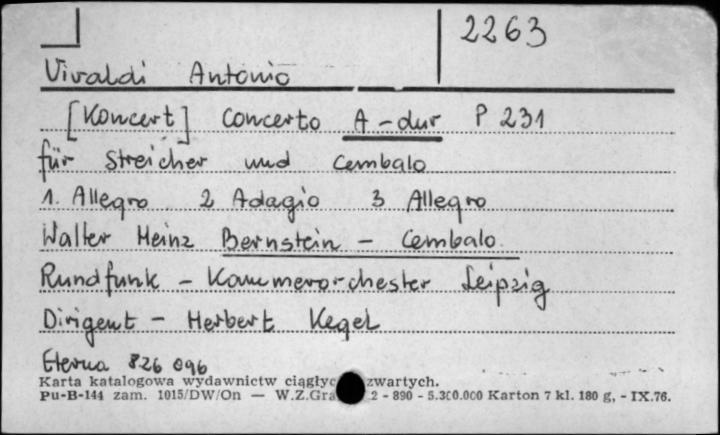 2263
Vivaldi Antonio
[Koncert] Concerto A-dur P 231
für Streicher und Cembalo
1. Allegro 2 Adagio 3 Allegro
Walter Heinz Bernstein - Cembalo
Rundfunk - Kammerorchester Leipzig
Dirigent - Herbert Kegel
Eterna 826 096
Karta katalogowa wydawnictw zwartych.
Pu-B-144 zam. 1015/DW/On — W.Z.Gra 2 - 890 - 5.300.000 Karton 7 kl. 180 g, - IX.76.